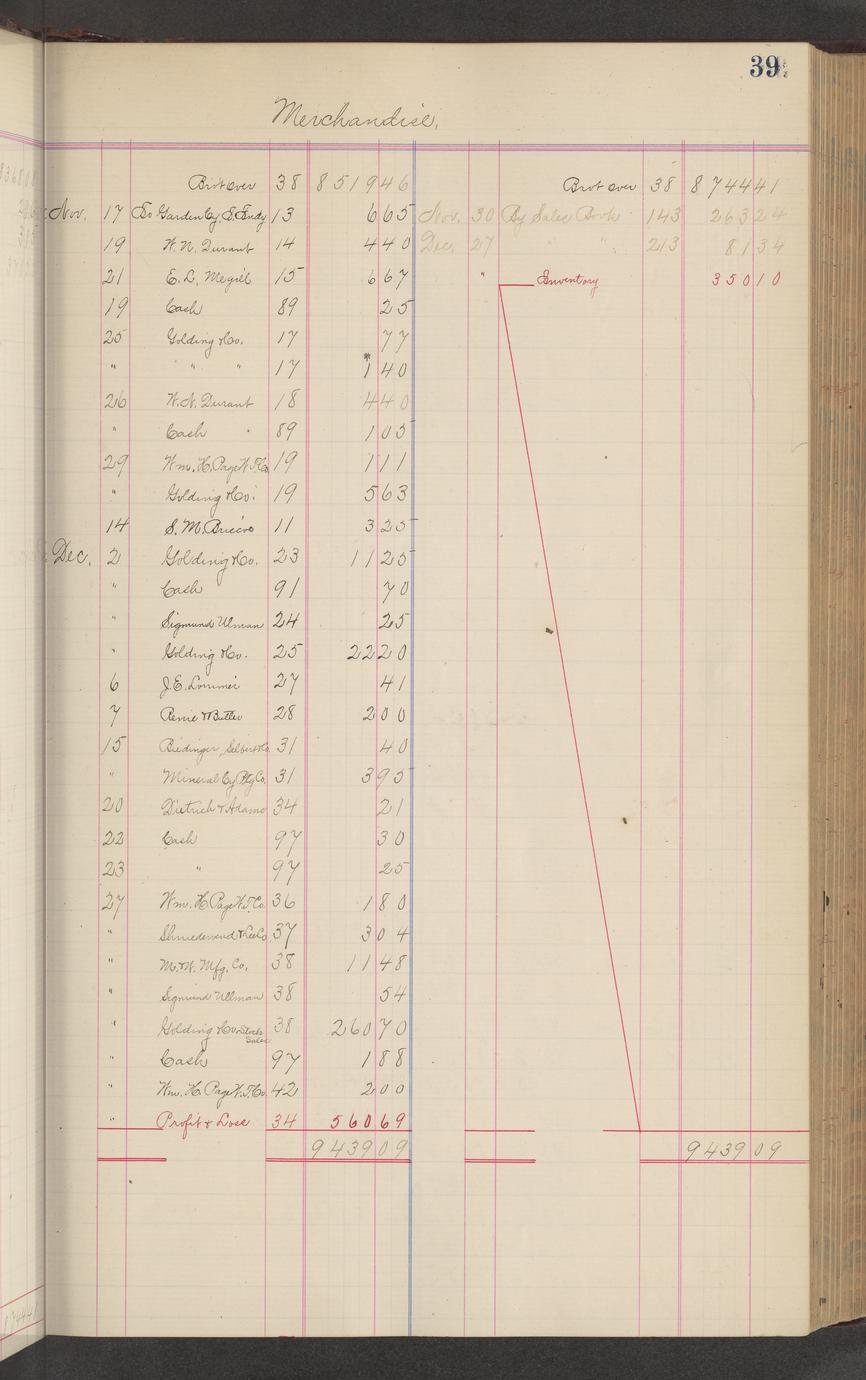 39
Merchandise,
Brot over 38 8519 46
Nov. 17 To Garden Cy. S. Endy 13 6 65
19 W. N. Durant 14 4 40
21 E. L. Megill 15 6 67
19 Cash 89 25
25 Golding & Co. 17 77
" " " 17 1 40
26 W. N. Durant 18 4 40
" Cash 89 1 05
29 Wm. H. Page W. T. Co. 19 1 11
" Golding & Co. 19 5 63
14 S. M. 11 3 25
Dec. 2 Golding & Co. 23 11 25
" Cash 91 70
" Sigmund Ulman 24 25
" Golding & Co. 25 22 20
6 J. E. Lorimer 27 41
7 & Butler 28 2 00
15 31 40
" Mineral Cy. Ptg Co. 31 3 95
20 Dietrich & Adams 34 21
22 Cash 97 30
23 " 97 25
27 Wm. H. Page W. T. Co. 36 1 80
" Shniedewend & Lee Co 37 3 04
" M. & W. Mfg. Co. 38 11 48
" Sigmund Ullman 38 54
" Golding & Co. Stock Sales 38 260 70
" Cash 97 1 88
" Wm. H. Page W. T. Co. 42 2 00
" Profit & Loss 34 560 69
9439 09
Brot over 38 8744 41
Nov. 30 By Sales Book 143 263 24
Dec. 27 " " 213 81 34
" Inventory 350 10
9439 09